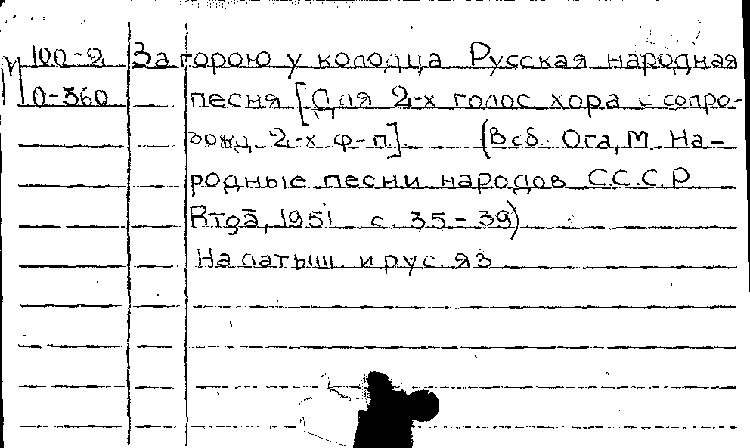 М 100-2 За горою у колодца Русская народная
0-360 песня [Для 2-х голос хора с сопро-
вожд. 2-х ф-п.] (В сб. Ога, М. На-
родные песни народов С.С.С.Р
Rīgā, 1951 с. 35-39)
На латыш. и рус. яз